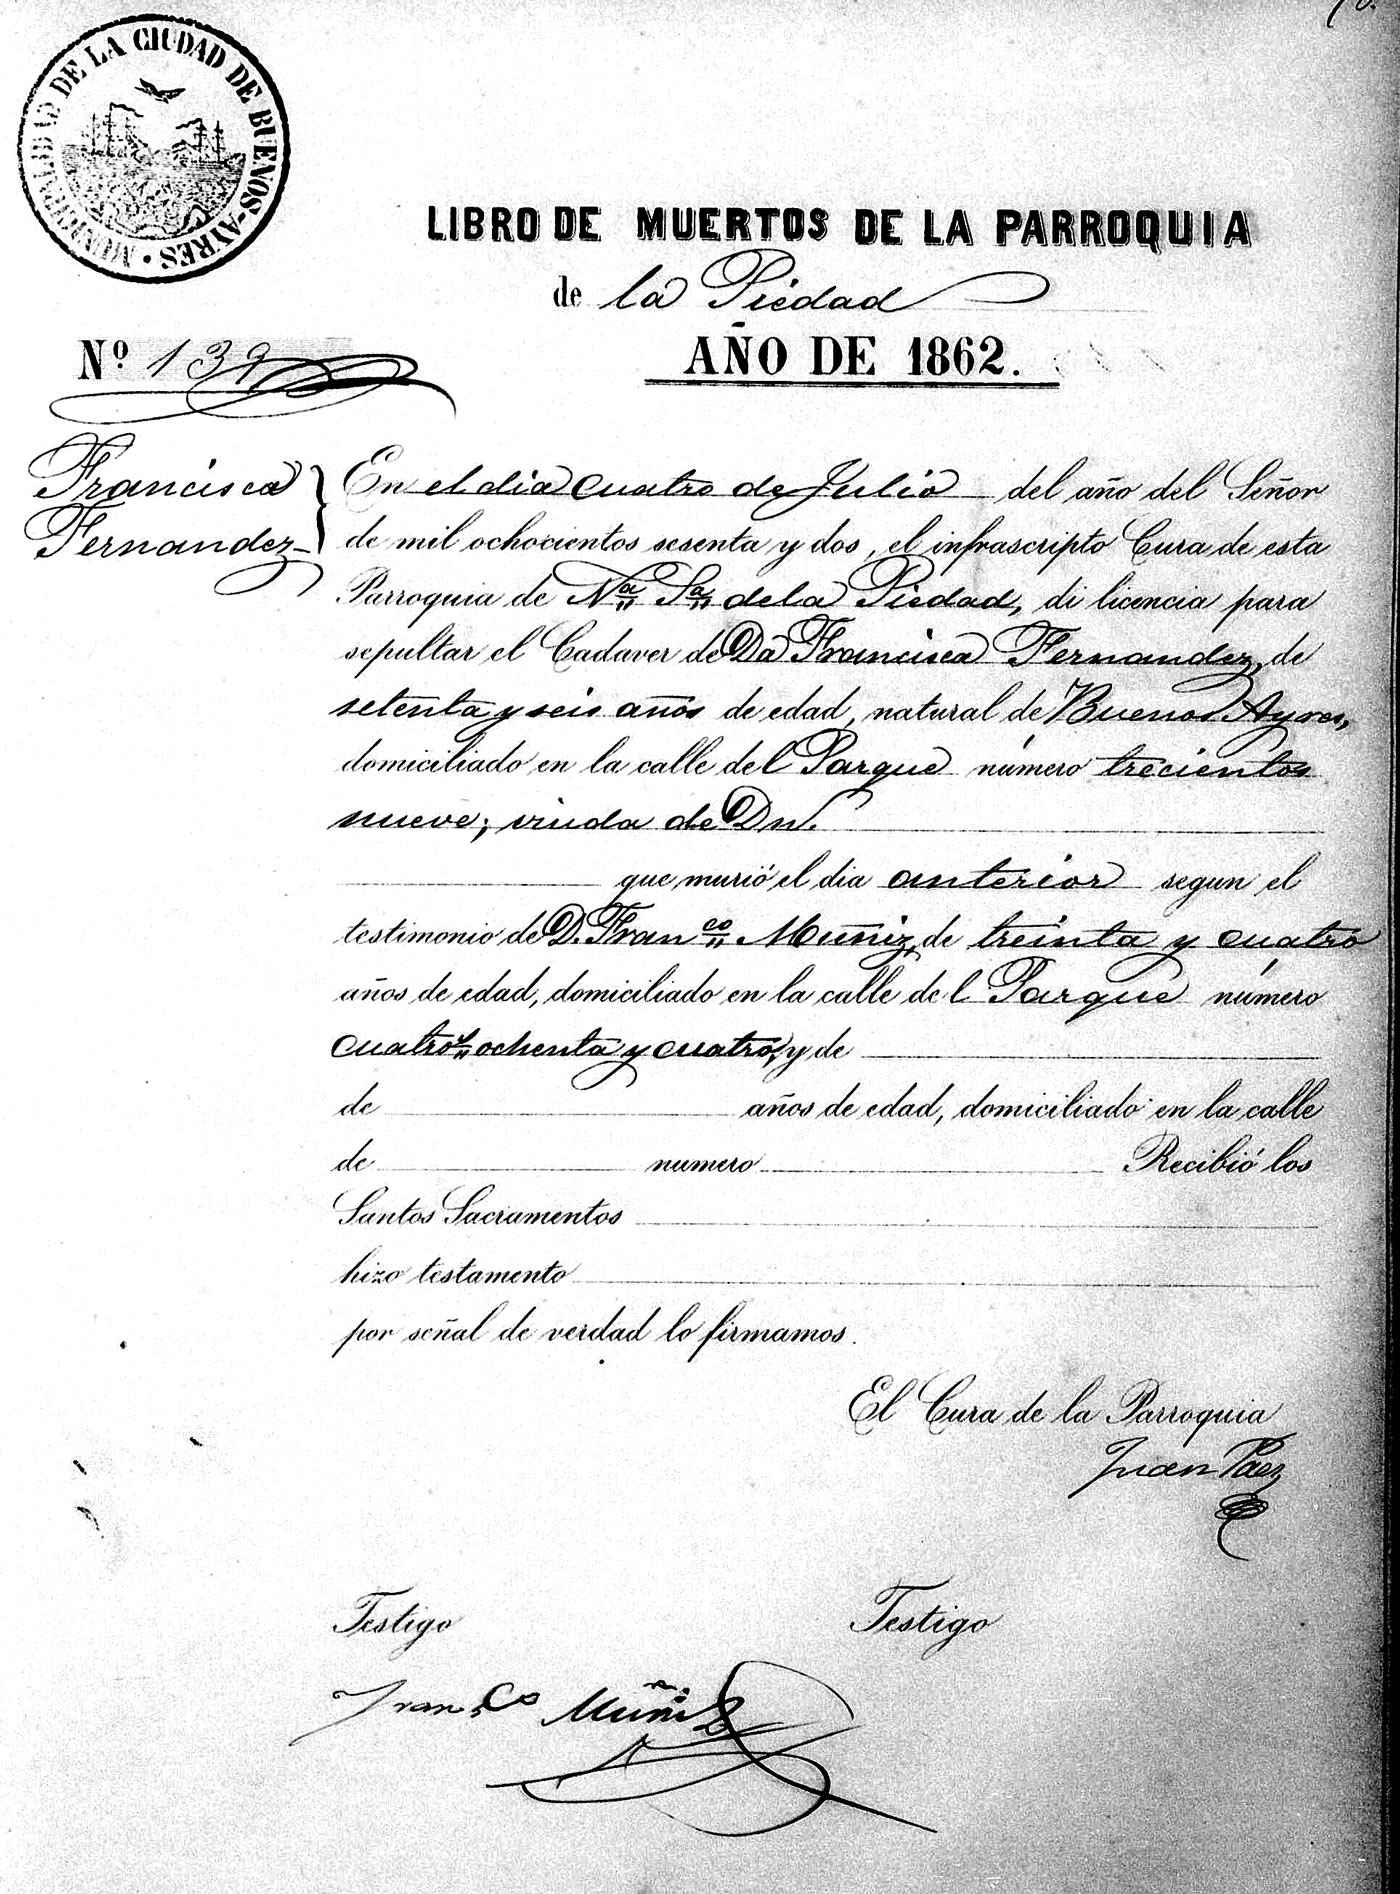 MUNICIPALIDAD DE LA CIUDAD DE BUENOS-AYRES
LIBRO DE MUERTOS DE LA PARROQUIA
de la Piedad
Nº 139
AÑO DE 1862.
Francisca
Fernandez
En el dia cuatro de Julio del año del Señor
de mil ochocientos sesenta y dos, el infrascripto Cura de esta
Parroquia de Nª Sª de la Piedad, di licencia para
sepultar el Cadaver de Da Francisca Fernandez, de
setenta y seis años de edad, natural de Buenos Ayres,
domiciliado en la calle del Parque número trecientos
nueve; viuda de Dn.
que murió el dia anterior segun el
testimonio de D. Franco Muñiz, de treinta y cuatro
años de edad, domiciliado en la calle del Parque número
cuatros ochenta y cuatro, y de
de años de edad, domiciliado en la calle
de numero Recibió los
Santos Sacramentos
hizo testamento
por señal de verdad lo firmamos.
El Cura de la Parroquia
Juan Paez
Testigo Testigo
Franco Muñiz